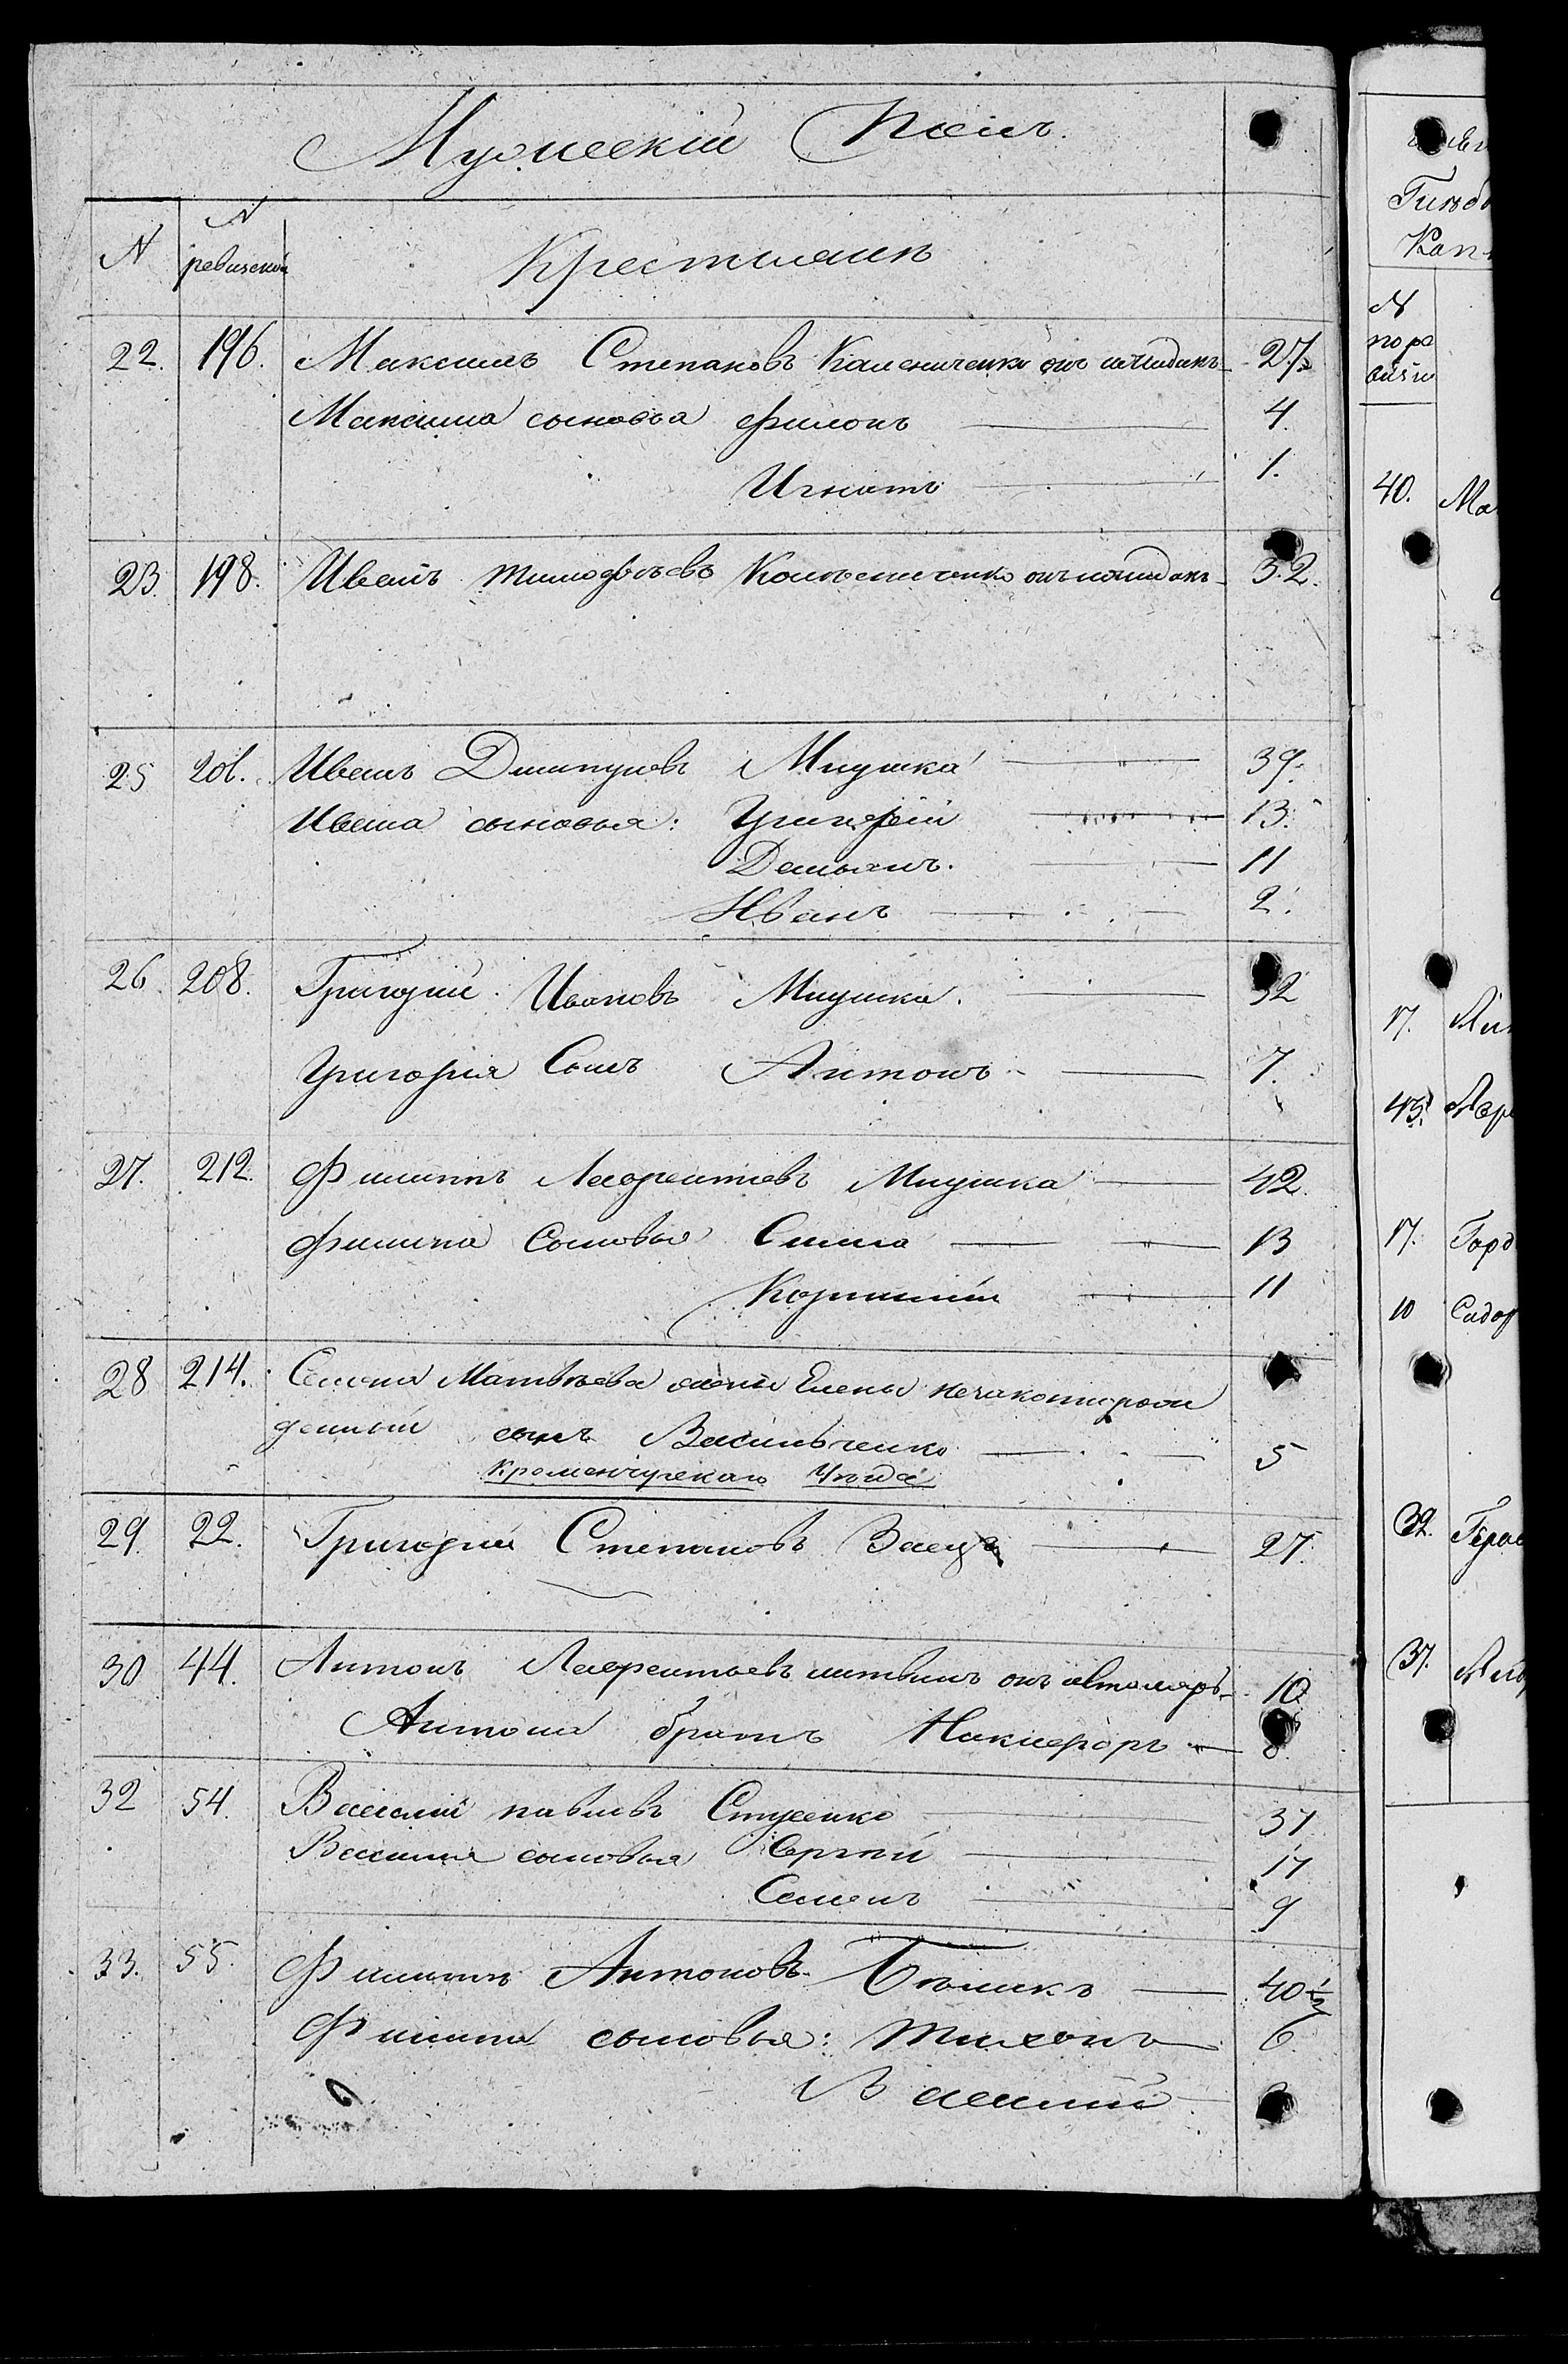 Мужескій Полъ.
N N ревизской Крестьянъ
22. 196. Максимъ Степановъ Калениченко онъ же 27½
Максима сыновья Филонъ 4.
Игнатъ 1.
23. 198. Иванъ Тимофѣевъ онъ же 32.
25 201. Иванъ Мицика 39.
Ивана сыновья: Григорій 13.
Демьянъ. 11
Иванъ 2.
26. 208. Григорій Ивановъ Мицика. 32
Григорія Сынъ Антонъ 7.
27. 212. Филиппъ Лаврентіевъ Мицика 42.
Филипа Сыновья Сила 13
11
28 214. Семена Матвѣева жены Елены незаконнорож
денный сынъ Васильченко 5
Кременчугскаго Уѣзда
29. 22. Григорій Степановъ Заецъ 27.
30 44. Антонъ Лаврентьевъ Литвинъ онъ же 10
Антона братъ Никифоръ 8.
32 54. Василий Павловъ Стусенко 37
Василия сыновья Сергѣй 17
Семенъ 9
33. 55. Филиппъ Антоновъ Бѣликъ 40½
Филипа сыновья: Тихонъ 6.
Василий
N
по ре
визіи
40. Ма
17.
43.
17. Горд
10 Сидор
32. Герас
37.